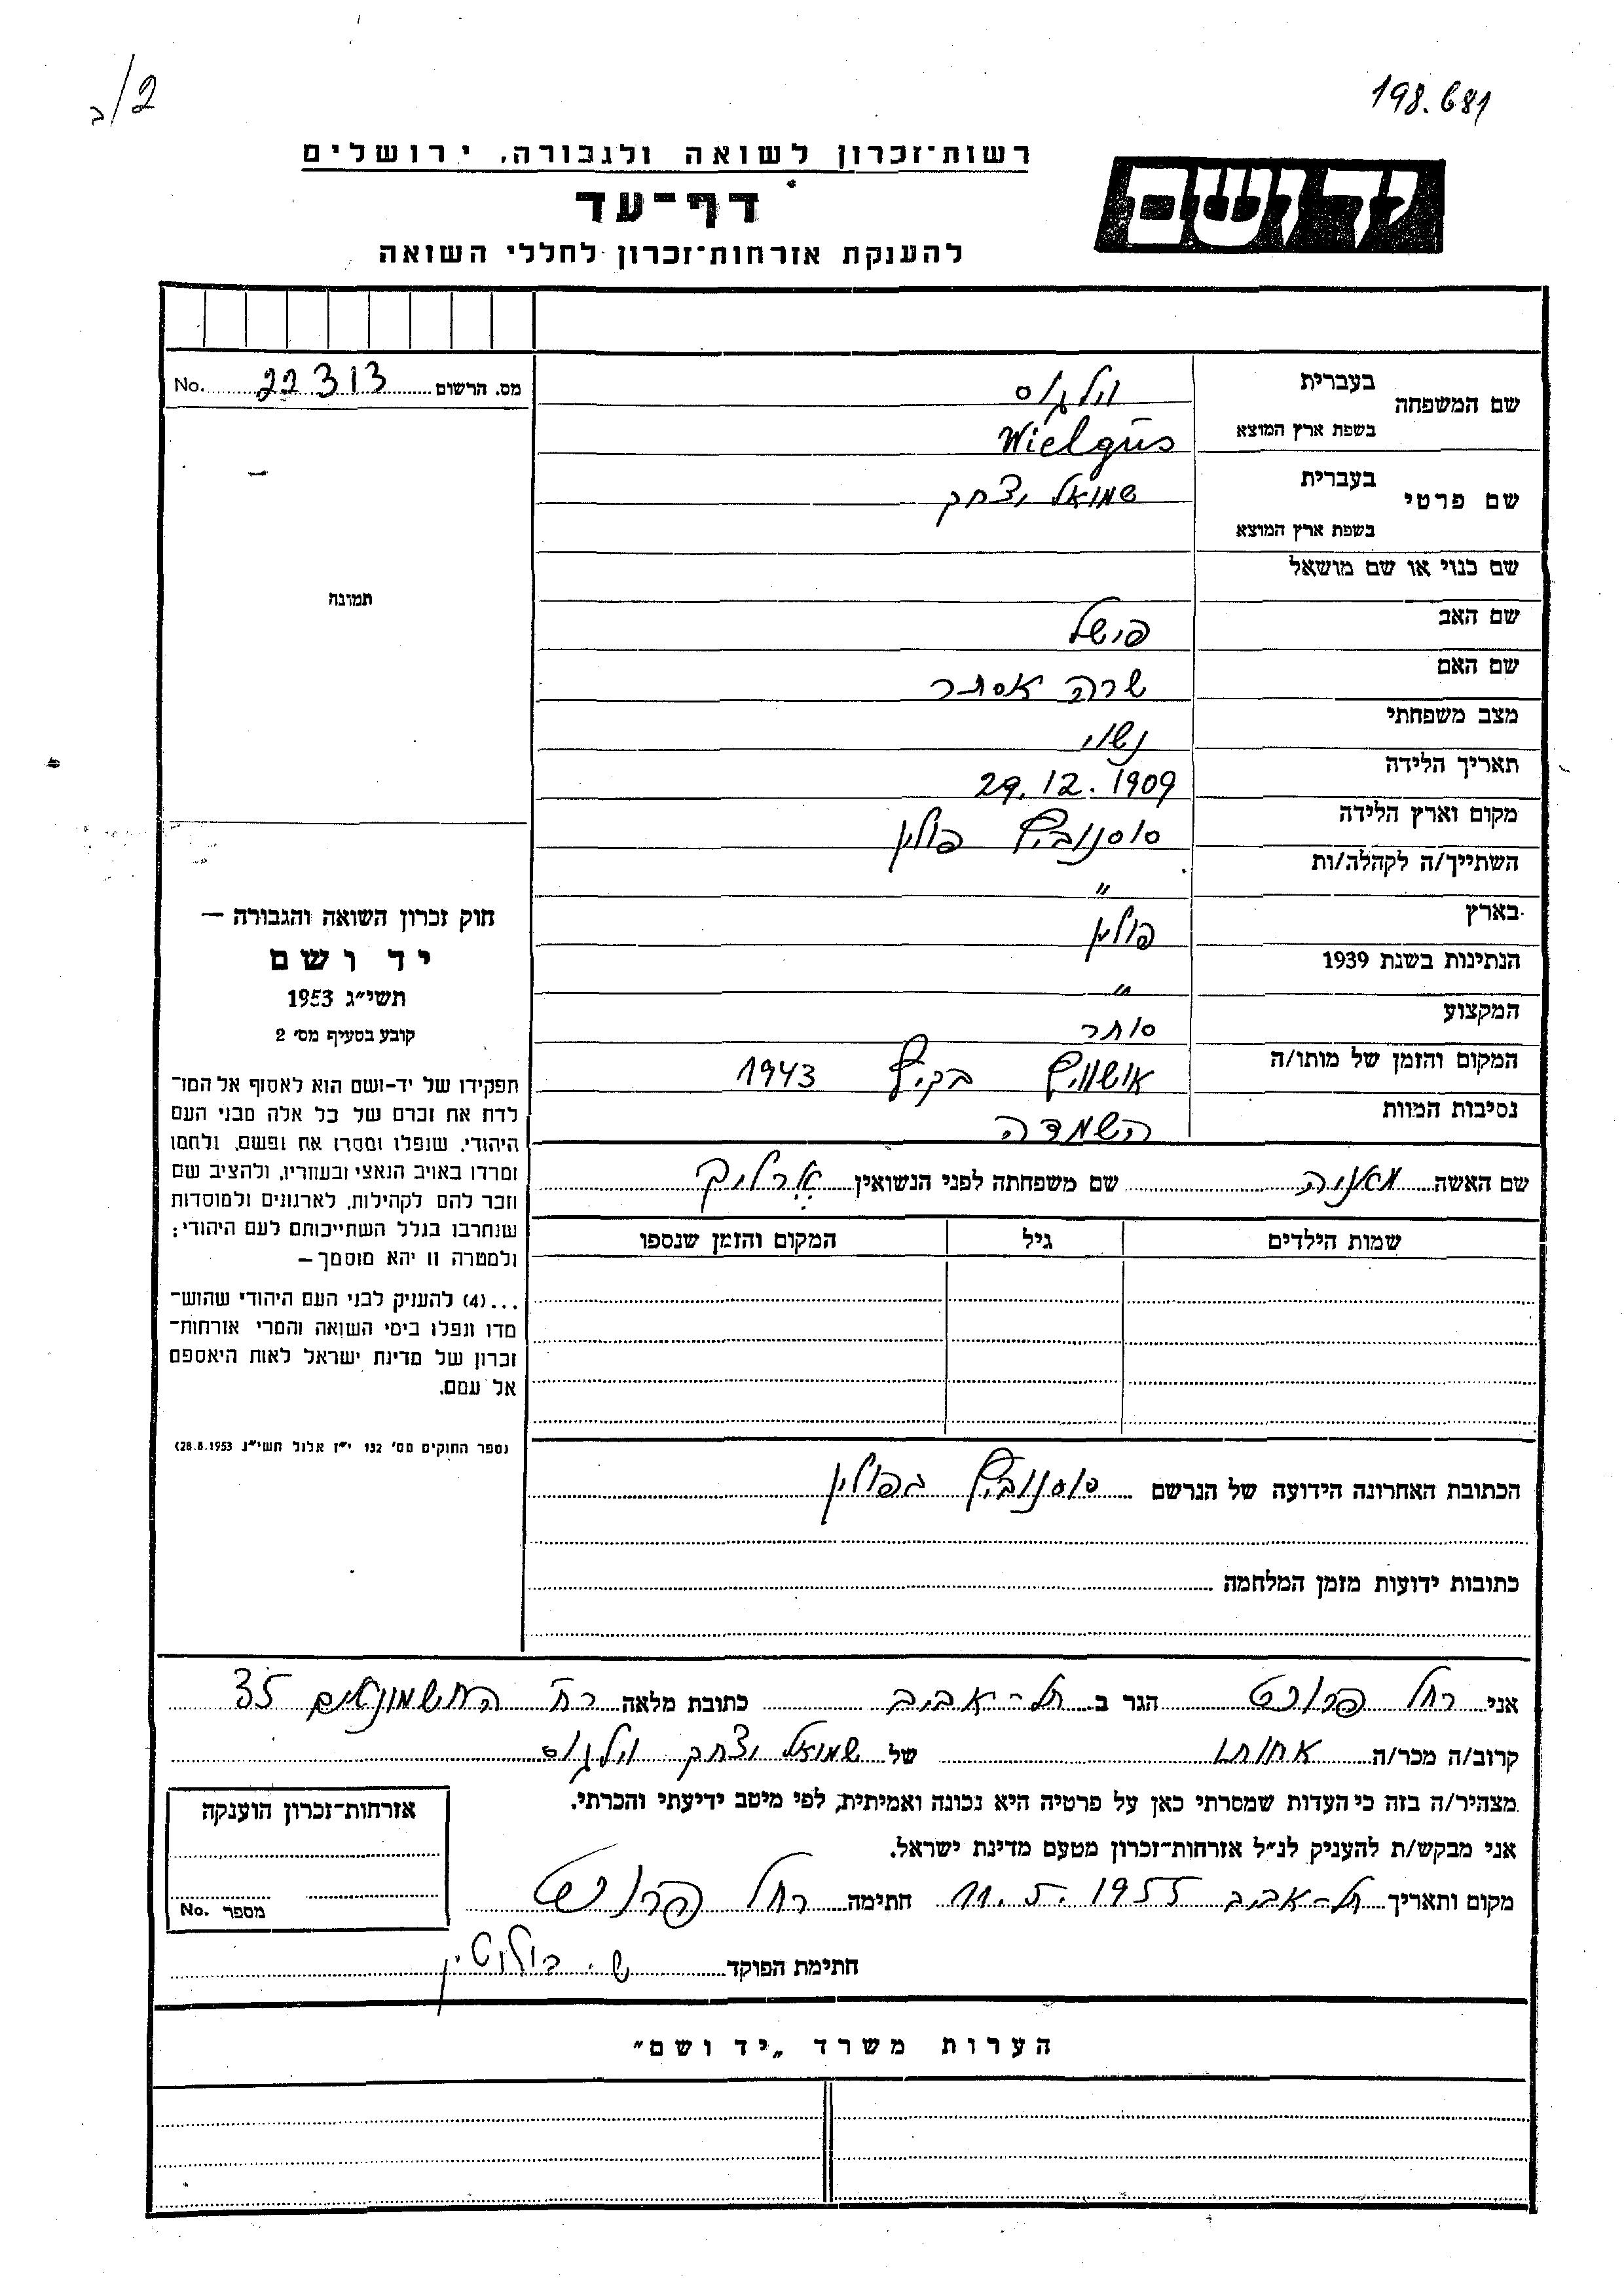 ב/2
198.681
ידושם
רשות־זכרון לשואה ולגבורה, ירושלים
דף־עד
להענקת אזרחות־זכרון לחללי השואה
מס. הרשום 22313 No.
שם המשפחה בעברית וילגוס
בשפת ארץ המוצא Wielgus
שם פרטי בעברית שמואל יצחק
בשפת ארץ המוצא
שם כנוי או שם מושאל
שם האב פישל
שם האם שרה אסתר
מצב משפחתי נשוי
תאריך הלידה 29.12.1909
מקום וארץ הלידה סוסנוביץ פולין
השתייך/ה לקהלה/ות "
בארץ פולין
הנתינות בשנת 1939 "
המקצוע סוחר
המקום והזמן של מותו/ה אושוויץ בקיץ 1943
נסיבות המוות השמדה
תמונה
חוק זכרון השואה והגבורה —
יד ושם
תשי״ג 1953
קובע בסעיף מס׳ 2
תפקידו של יד-ושם הוא לאסוף אל המו־
לדת את זכרם של כל אלה מבני העם
היהודי, שנפלו ומסרו את נפשם, נלחמו
ומרדו באויב הנאצי ובעוזריו, ולהציב שם
וזכר להם לקהילות, לארגונים ולמוסדות
שנחרבו בגלל השתייכותם לעם היהודי;
ולמטרה זו יהא מוסמך—
...(4) להעניק לבני העם היהודי שהוש־
מדו ונפלו בימי השואה והמרי אזרחות־
זכרון של מדינת ישראל לאות היאספם
אל עמם.
(ספר החוקים מס׳ 132 י״ז אלול תשי״ג 28.8.1953)
שם האשה מאניה שם משפחתה לפני הנשואין
שמות הילדים גיל המקום והזמן שנספו
הכתובת האחרונה הידועה של הנרשם סוסנוביץ בפולין
כתובות ידועות מזמן המלחמה
אני רחל הגר ב תל-אביב כתובת מלאה רח׳ החשמונאים 35
קרוב/ה מכר/ה אחותו של שמואל יצחק וילגוס
מצהיר/ה בזה כי העדות שמסרתי כאן על פרטיה היא נכונה ואמיתית, לפי מיטב ידיעתי והכרתי.
אני מבקש/ת להעניק לנ״ל אזרחות־זכרון מטעם מדינת ישראל.
מקום ותאריך תל-אביב 11.5.1955 חתימה רחל
אזרחות־זכרון הוענקה
מספר No.
חתימת הפוקד ש.
הערות משרד „יד ושם״